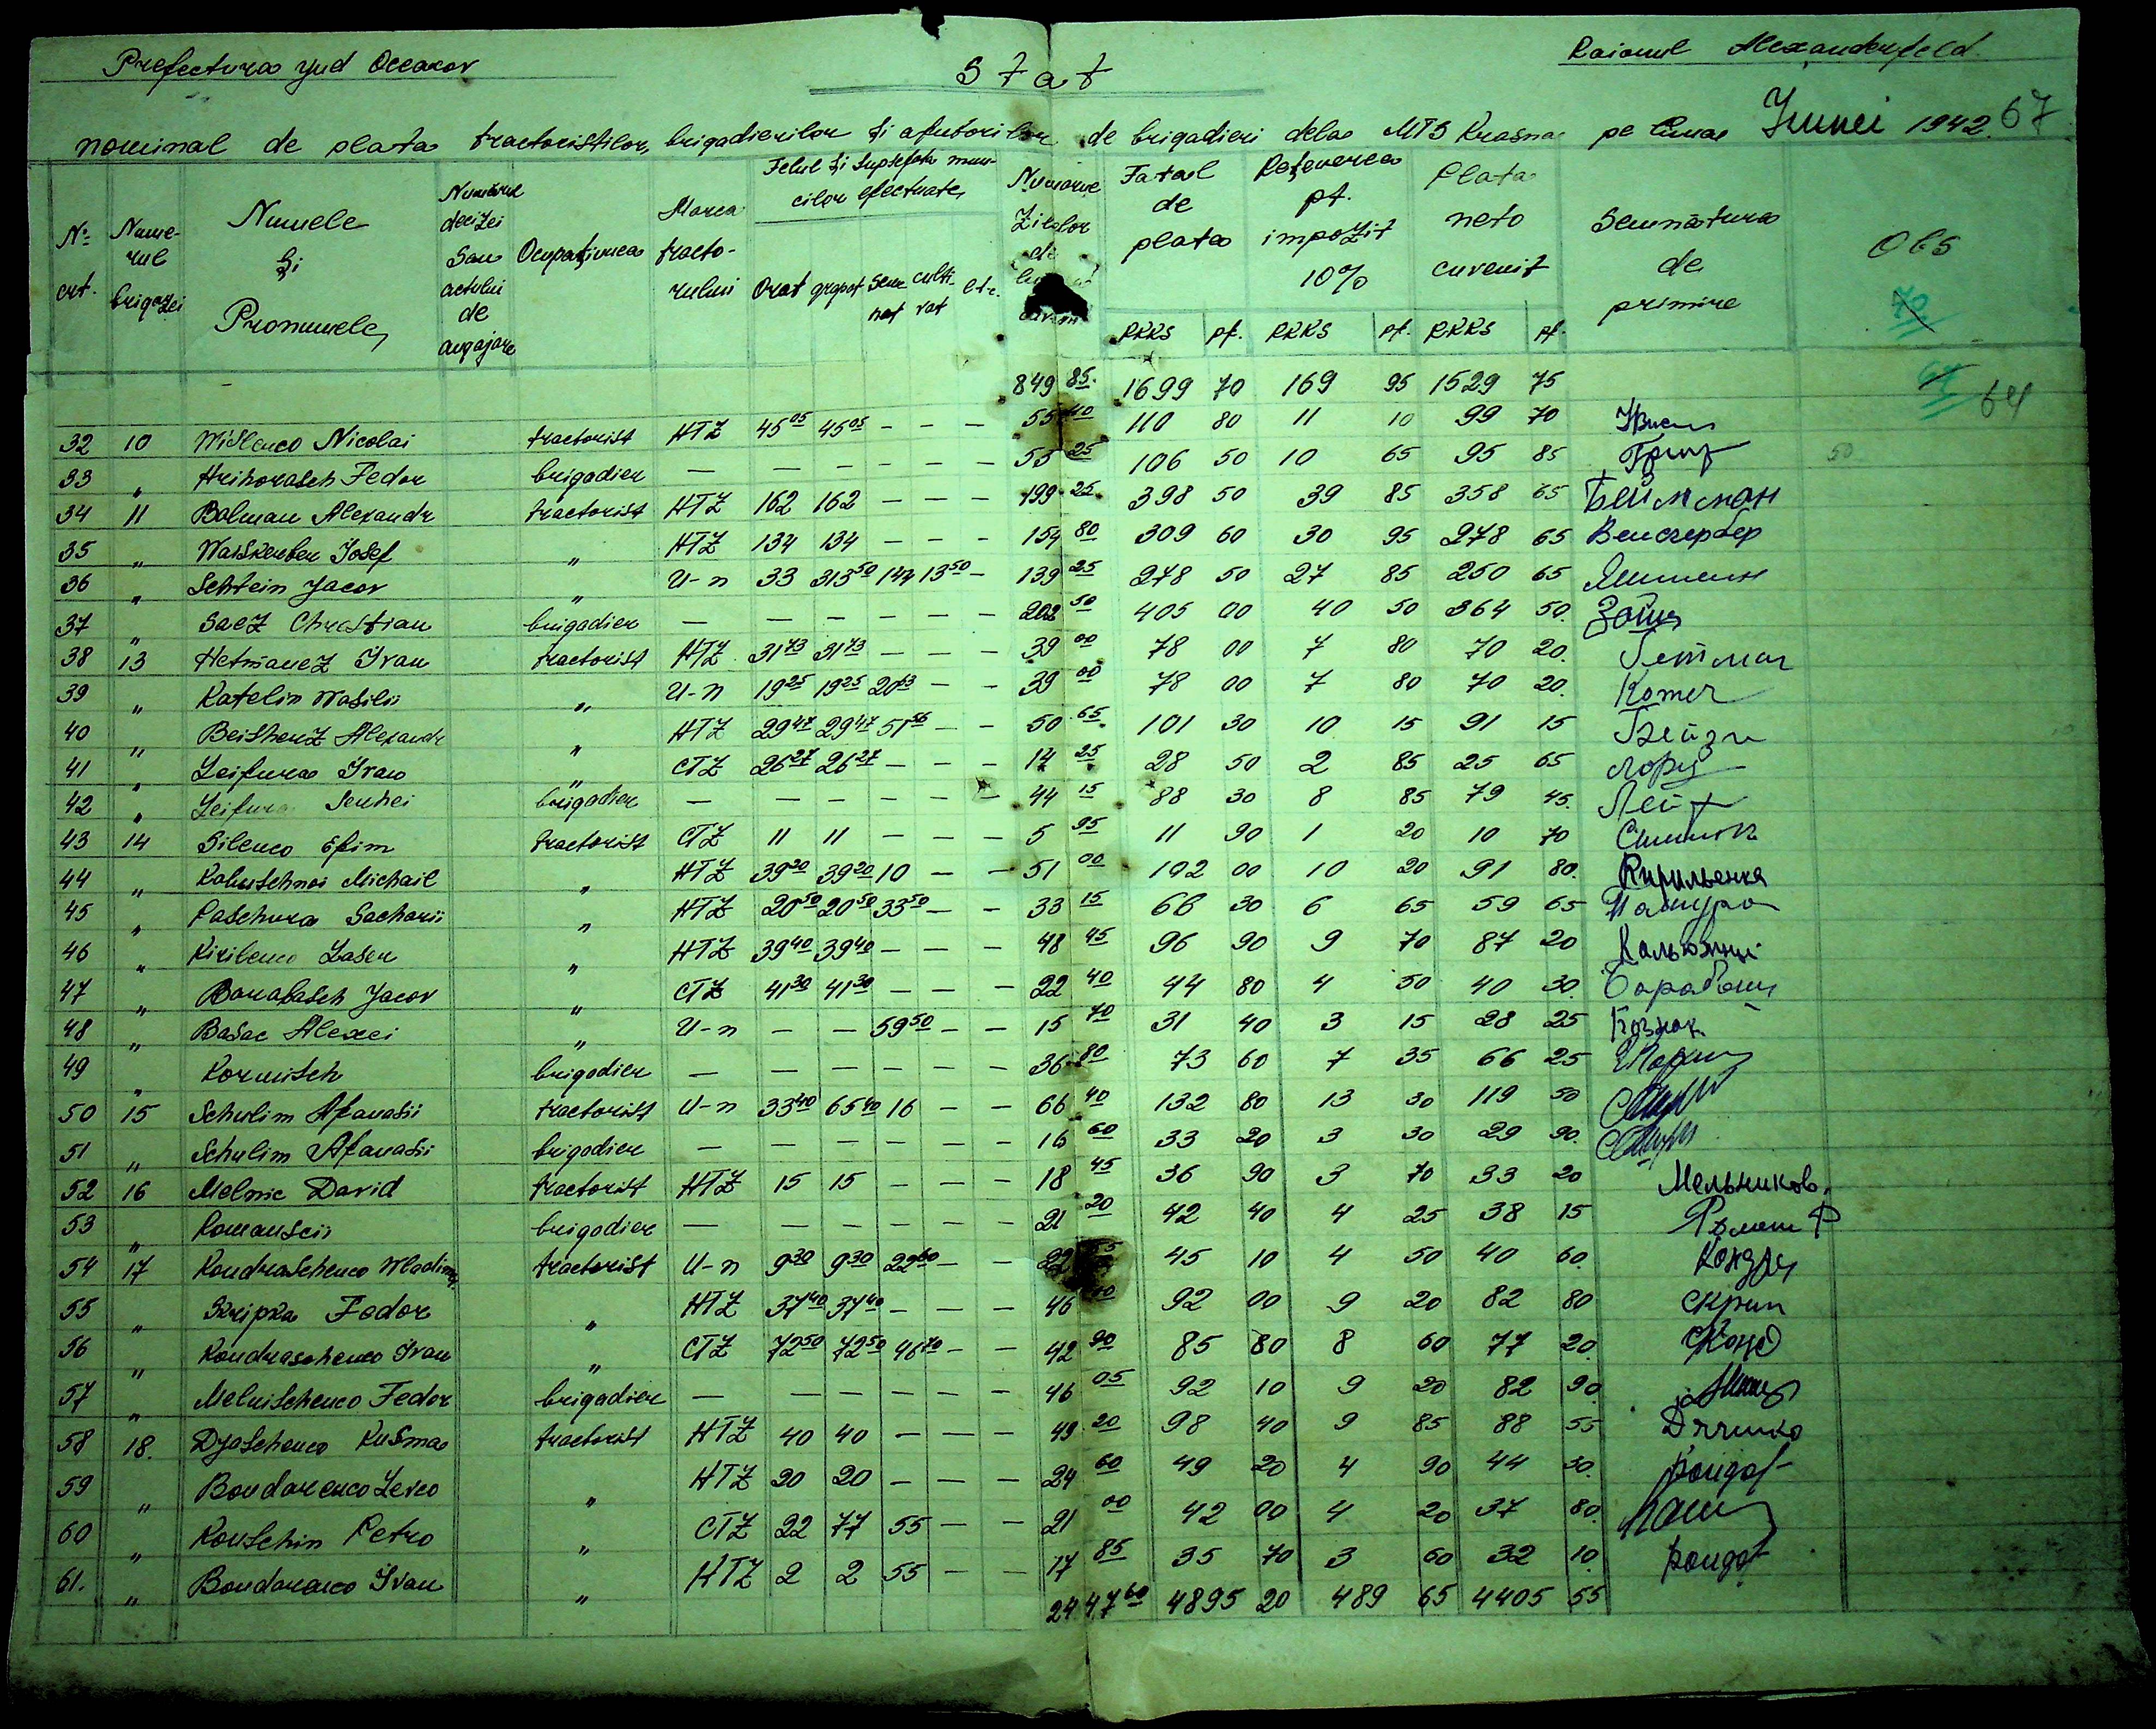 Prefectura jud Oceacov
Stat
Raionul Alexanderfeld
nominal de plata tractoristilor, brigadierilor și ajutorilor de brigadieri dela MTS Krasna pe luna Iunei 1942. 67
No crt. Numerul brigazei Numele și Pronumele Numărul deciziei sau actului de angajare Ocupațiunea Marca tractorului Felul și suprafața muncilor efectuate Numărul zilelor de Total de plata Reținerea pt. impozit 10% Plata neto cuvenit Semnătura de primire Obs
Orat grapat semenat cultivat etc. RKKS pf. RKKS pf. RKKS pf. 70
849 85 1699 70 169 95 1529 75 64 64
32 10 Wislenco Nicolai tractorist HTZ 45 05 45 05 - - - 55 40 110 80 11 10 99 70
33 " Hrihorasch Fedor brigadier — - - - - - 53 25 106 50 10 65 95 85 50
34 11 Balman Alexandr tractorist HTZ 162 162 - - - 199 25 398 50 39 85 358 65
35 " Waiskerber Josef " HTZ 134 134 - - - 154 80 309 60 30 95 278 65
36 " Schtein Jacov " U-n 33 313 50 144 13 50 - 139 25 278 50 27 85 250 65
37 " Saez Christian brigadier — - - - - - 202 50 405 00 40 50 364 50
38 13 Hetmanez Ivan tractorist HTZ 31 73 31 73 - - - 39 00 78 00 7 80 70 20
39 " Katelin Wasilii " U-n 19 25 19 25 20 63 - - 39 00 78 00 7 80 70 20
40 " Beishenz Alexandr " HTZ 29 47 29 47 51 56 - - 50 65 101 30 10 15 91 15
41 " Leifura Ivan " CTZ 26 27 26 27 - - - 14 25 28 50 2 85 25 65
42 " Leifura Serhei brigadier — - - - - - 44 15 88 30 8 85 79 45
43 14 Silenco Efim tractorist CTZ 11 11 - - - 5 95 11 90 1 20 10 70
44 " Kaluschnoi Michail " HTZ 39 20 39 20 10 - - 51 00 102 00 10 20 91 80 Кирильенка
45 " Paschura Sacharii " HTZ 20 50 20 50 33 50 - - 33 15 66 30 6 65 59 65 Пашура
46 " Kirilenco Laser " HTZ 39 40 39 40 - - - 48 45 96 90 9 70 87 20
47 " Barabasch Jacov " CTZ 41 30 41 30 - - - 22 40 44 80 4 50 40 30
48 " Basac Alexei " U-n - - 59 50 - - 15 70 31 40 3 15 28 25
49 " Kornisch brigadier — - - - - - 36 80 73 60 7 35 66 25
50 15 Schulim Afanasii tractorist U-n 33 40 65 40 16 - - 66 40 132 80 13 30 119 50
51 " Schulim Afanasii brigadier — - - - - - 16 60 33 20 3 30 29 90
52 16 Melnic David tractorist HTZ 15 15 - - - 18 45 36 90 3 70 33 20 Мельников.
53 " Romanscii brigadier — - - - - - 21 20 42 40 4 25 38 15
54 17 Kondraschenco Wladimir tractorist U-n 9 30 9 30 22 60 - - 22 55 45 10 4 50 40 60
55 " Skripka Fedor " HTZ 37 40 37 40 - - - 46 00 92 00 9 20 82 80 Скрип
56 " Kondraschenco Ivan " CTZ 72 50 72 50 46 70 - - 42 90 85 80 8 60 77 20
57 " Melnischenco Fedor brigadier — - - - - - 46 05 92 10 9 20 82 90
58 18. Djaschenco Kusma tractorist HTZ 40 40 - - - 49 20 98 40 9 85 88 55
59 " Bondarenco Levco " HTZ 20 20 - - - 24 60 49 20 4 90 44 30
60 " Konschin Petro " CTZ 22 77 55 - - 21 00 42 00 4 20 37 80
61. " Bondarenco Ivan " HTZ 2 2 55 - - 17 85 35 70 3 60 32 10
2447 60 4895 20 489 65 4405 55